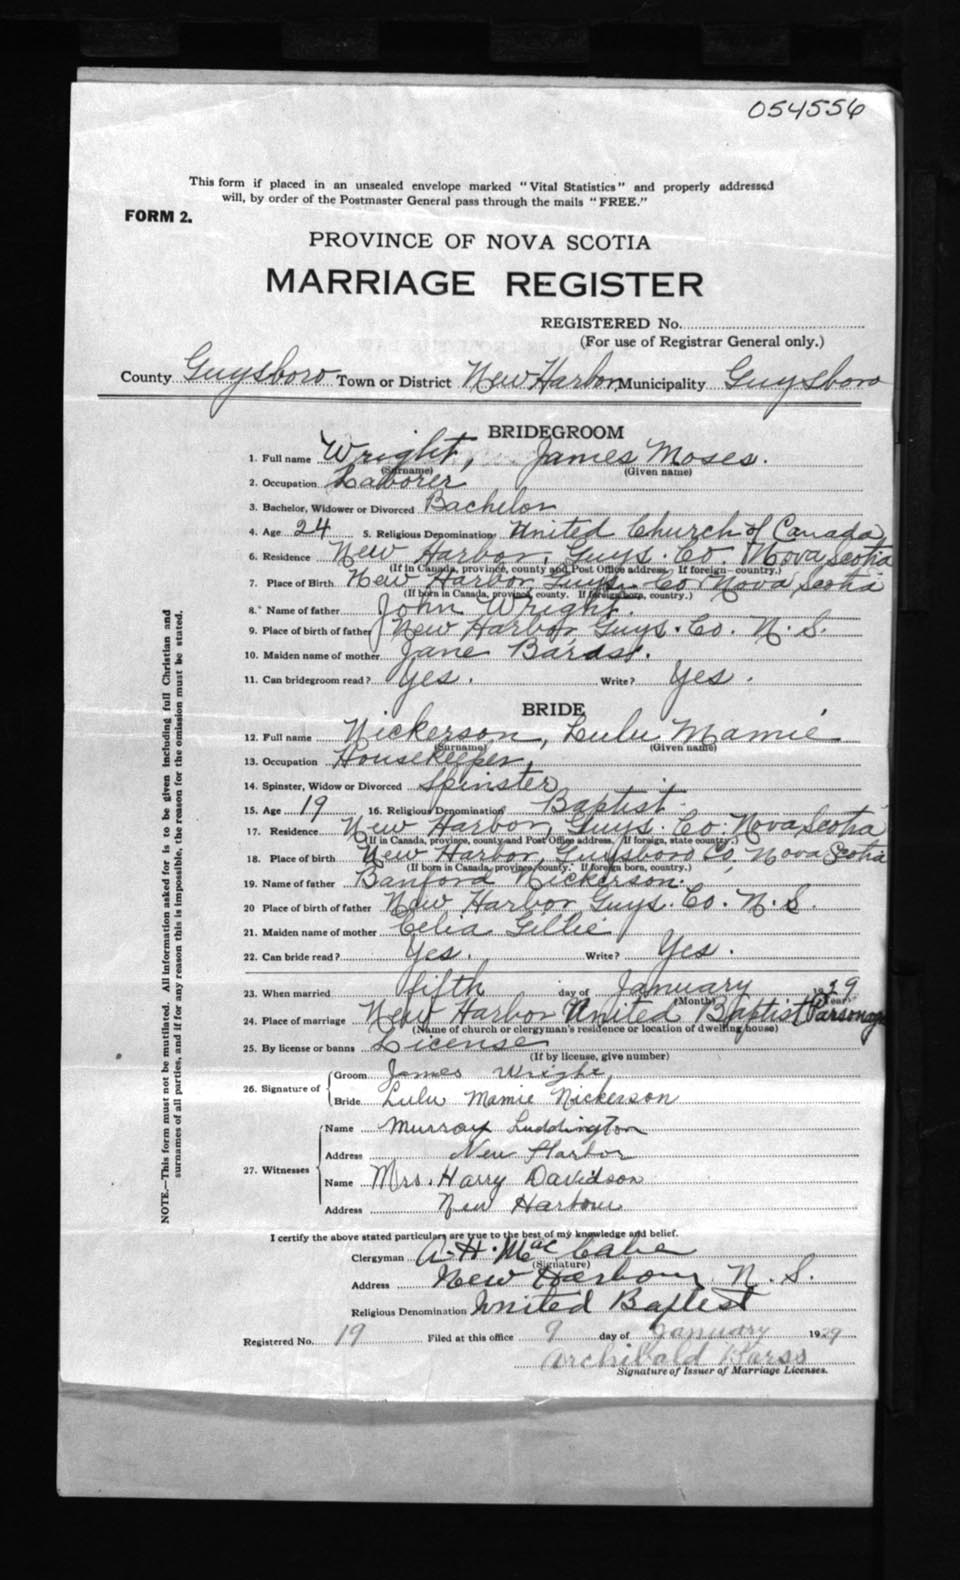 054556
This form if placed in an unsealed envelope marked "Vital Statistics" and properly addressed
will, by order of the Postmaster General pass through the mails "FREE."
FORM 2.
PROVINCE OF NOVA SCOTIA
MARRIAGE REGISTER
REGISTERED No.
(For use of Registrar General only.)
County Guysboro Town or District New Harbor Municipality Guysboro
BRIDEGROOM
1. Full name Wright, James Moses.
(Surname) (Given name)
2. Occupation Laborer
3. Bachelor, Widower or Divorced Bachelor
4. Age 24 5. Religious Denomination United Church of Canada
6. Residence New Harbor, Guys. Co. Nova Scotia
(If in Canada, province, county and Post Office address. If foreign country.)
7. Place of Birth New Harbor Guys. Co. Nova Scotia
(If born in Canada, province, county. If foreign born, country.)
8. Name of father John Wright.
9. Place of birth of father New Harbor Guys. Co. N. S.
10. Maiden name of mother Jane
11. Can bridegroom read? Yes. Write? Yes.
BRIDE
12. Full name Nickerson, Lulu Mamie
(Surname) (Given name)
13. Occupation Housekeeper,
14. Spinster, Widow or Divorced Spinster
15. Age 19 16. Religious Denomination Baptist
17. Residence New Harbor, Guys. Co. Nova Scotia
(If in Canada, province, county and Post Office address. If foreign, state country.)
18. Place of birth New Harbor, Guysboro Co, Nova Scotia
(If born in Canada, province, county. If foreign born, country.)
19. Name of father Banford Nickerson.
20 Place of birth of father New Harbor Guys. Co. N. S.
21. Maiden name of mother Celia Gillie
22. Can bride read? Yes. Write? Yes.
23. When married fifth day of January 1929
(Month) (Year)
24. Place of marriage New Harbor United Baptist Parsonage
(Name of church or clergyman's residence or location of dwelling house)
25. By license or banns License
(If by license, give number)
26. Signature of Groom James Wright
Bride Lulu Mamie Nickerson
27. Witnesses Name Murray Luddington
Address New Harbor
Name Mrs. Harry Davidson
Address New Harbour
I certify the above stated particulars are true to the best of my knowledge and belief.
Clergyman A. H. MacCabe
(Signature)
Address New Harbour, N. S.
Religious Denomination United Baptist
Registered No. 19 Filed at this office 9 day of January 1929
Archibald
Signature of Issuer of Marriage Licenses.
NOTE.—This form must not be mutilated. All information asked for is to be given including full Christian and
surnames of all parties, and if for any reason this is impossible, the reason for the omission must be stated.